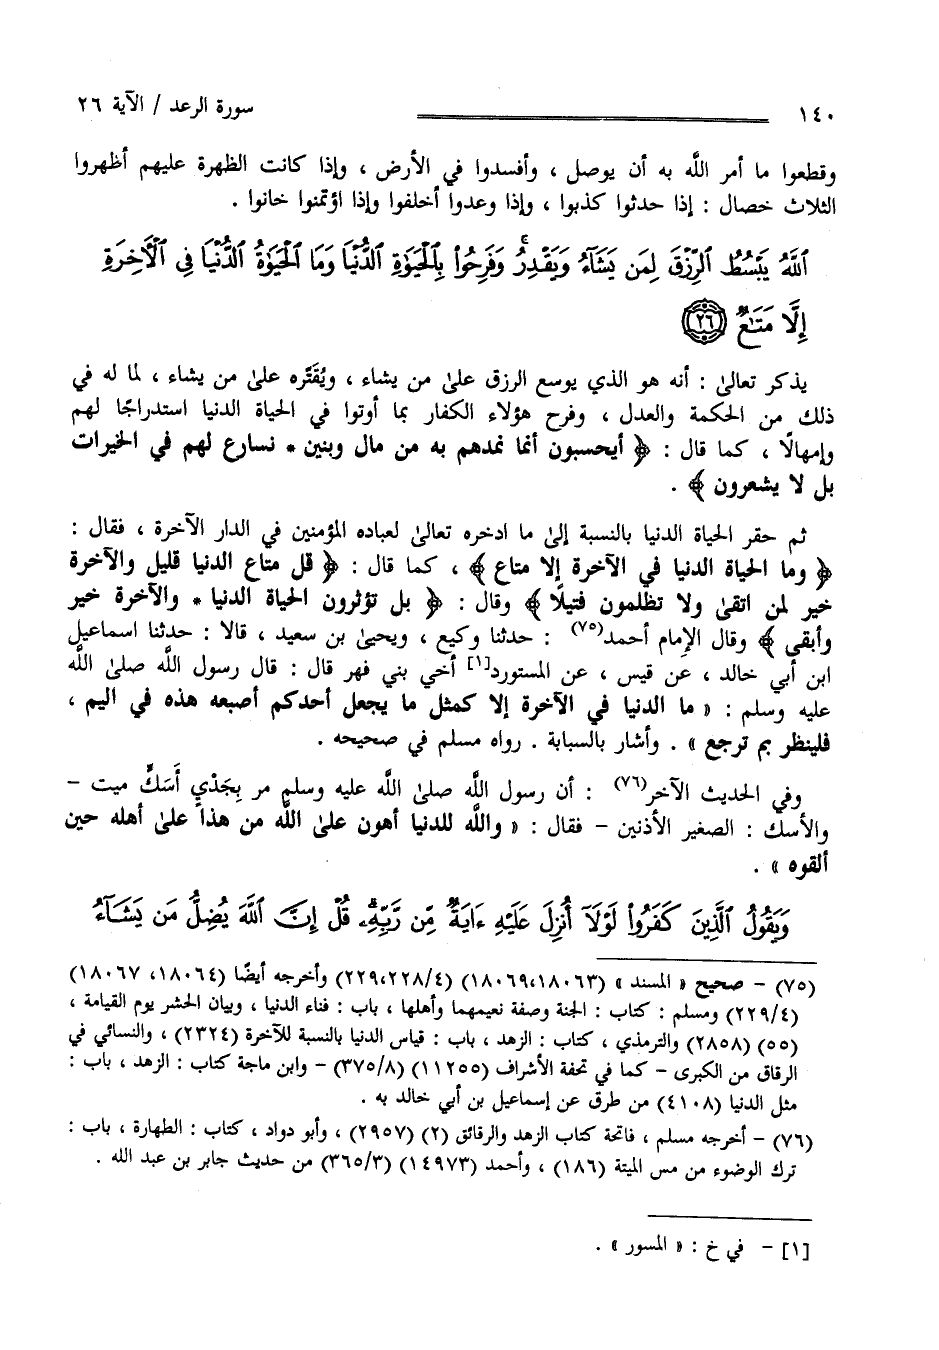 ١٤٠ سورة الرعد / الآية ٢٦
وقطعوا ما أمر اللَّه به أن يوصل ، وأفسدوا في الأرض ، وإذا كانت الظهرة عليهم أظهروا
الثلاث خصال : إذا حدثوا كذبوا ، وإذا وعدوا أخلفوا وإذا اؤتمنوا خانوا .
ٱللَّهُ يَبْسُطُ ٱلرِّزْقَ لِمَن يَشَآءُ وَيَقْدِرُ ۚ وَفَرِحُوا۟ بِٱلْحَيَوٰةِ ٱلدُّنْيَا وَمَا ٱلْحَيَوٰةُ ٱلدُّنْيَا فِى ٱلْـَٔاخِرَةِ
إِلَّا مَتَـٰعٌ ٢٦
يذكر تعالىٰ : أنه هو الذي يوسع الرزق علىٰ من يشاء ، ويُقَتّره علىٰ من يشاء ، لما له في
ذلك من الحكمة والعدل ، وفرح هؤلاء الكفار بما أوتوا في الحياة الدنيا استدراجًا لهم
وإمهالًا ، كما قال : ﴿ أيحسبون أنما نمدهم به من مال وبنين * نسارع لهم في الخيرات
بل لا يشعرون ﴾ .
ثم حقر الحياة الدنيا بالنسبة إلىٰ ما ادخره تعالىٰ لعباده المؤمنين في الدار الآخرة ، فقال :
﴿ وما الحياة الدنيا في الآخرة إلا متاع ﴾ ، كما قال : ﴿ قل متاع الدنيا قليل والآخرة
خير لمن اتقىٰ ولا تظلمون فتيلًا ﴾ وقال : ﴿ بل تؤثرون الحياة الدنيا * والآخرة خير
وأبقى ﴾ وقال الإمام أحمد(٧٥) : حدثنا وكيع ، ويحيىٰ بن سعيد ، قالا : حدثنا اسماعيل
ابن أبي خالد ، عن قيس ، عن المستورد[١] أخي بني فهر قال : قال رسول اللَّه صلىٰ اللَّه
عليه وسلم : « ما الدنيا في الآخرة إلا كمثل ما يجعل أحدكم أصبعه هذه في اليم ،
فلينظر بم ترجع » . وأشار بالسبابة . رواه مسلم في صحيحه .
وفي الحديث الآخر(٧٦) : أن رسول اللَّه صلىٰ اللَّه عليه وسلم مر بِجَدْيٍ أَسَكَّ ميت –
والأسك : الصغير الأذنين – فقال : « واللَّه للدنيا أهون علىٰ اللَّه من هذا علىٰ أهله حين
ألقوه » .
وَيَقُولُ ٱلَّذِينَ كَفَرُوا۟ لَوْلَآ أُنزِلَ عَلَيْهِ ءَايَةٌ مِّن رَّبِّهِۦ ۗ قُلْ إِنَّ ٱللَّهَ يُضِلُّ مَن يَشَآءُ
(٧٥) – صحيح « المسند » (١٨٠٦٣،١٨٠٦٩) (٢٢٩،٢٢٨/٤) وأخرجه أيضًا (١٨٠٦٤، ١٨٠٦٧)
(٢٢٩/٤) ومسلم : كتاب : الجنة وصفة نعيمهما وأهلها ، باب : فناء الدنيا ، وبيان الحشر يوم القيامة ،
(٥٥) (٢٨٥٨) والترمذي ، كتاب : الزهد ، باب : قياس الدنيا بالنسبة للآخرة (٢٣٢٤) ، والنسائي في
الرقاق من الكبرى – كما في تحفة الأشراف (١١٢٥٥) (٣٧٥/٨) – وابن ماجة كتاب : الزهد ، باب :
مثل الدنيا (٤١٠٨) من طرق عن إسماعيل بن أبي خالد به .
(٧٦) – أخرجه مسلم ، فاتحة كتاب الزهد والرقائق (٢) (٢٩٥٧) ، وأبو دواد ، كتاب : الطهارة ، باب :
ترك الوضوء من مس الميتة (١٨٦) ، وأحمد (١٤٩٧٣) (٣٦٥/٣) من حديث جابر بن عبد الله .
[١] – في خ : « المسور » .